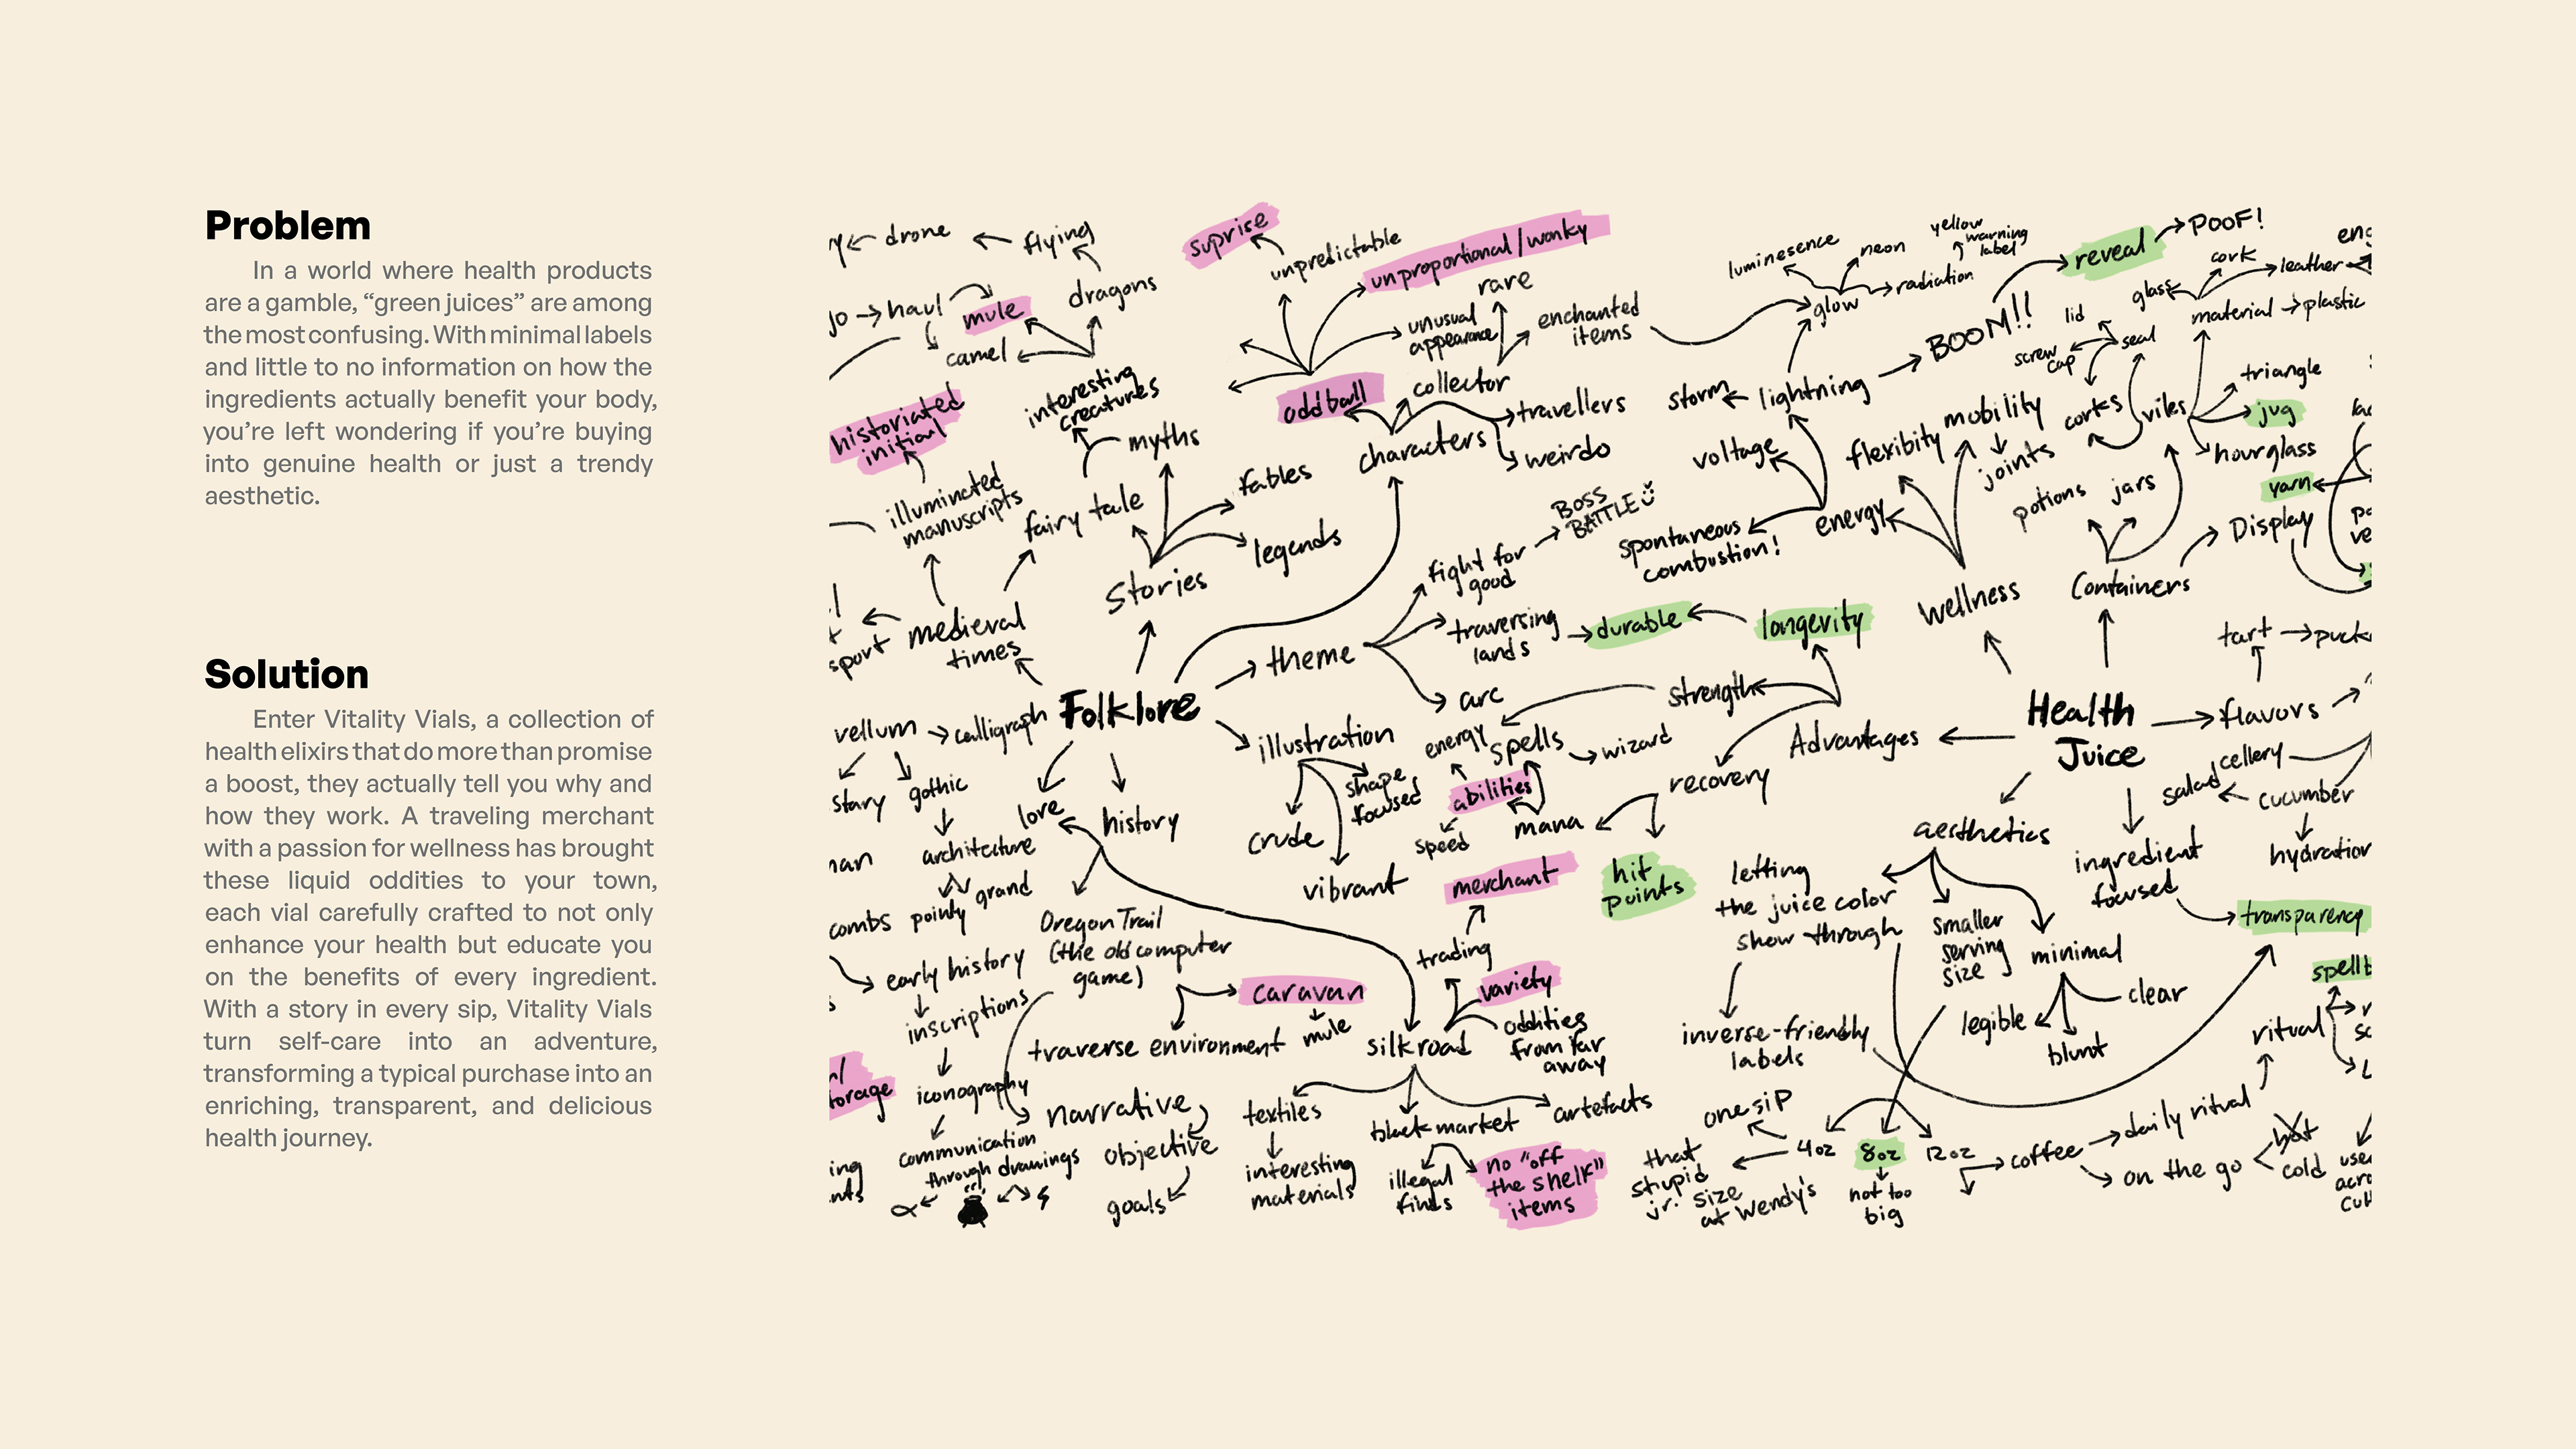 Problem
In a world where health products
are a gamble, “green juices” are among
the most confusing. With minimal labels
and little to no information on how the
ingredients actually benefit your body,
you’re left wondering if you’re buying
into genuine health or just a trendy
aesthetic.
Solution
Enter Vitality Vials, a collection of
health elixirs that do more than promise
a boost, they actually tell you why and
how they work. A traveling merchant
with a passion for wellness has brought
these liquid oddities to your town,
each vial carefully crafted to not only
enhance your health but educate you
on the benefits of every ingredient.
With a story in every sip, Vitality Vials
turn self-care into an adventure,
transforming a typical purchase into an
enriching, transparent, and delicious
health journey.
drone
flying
haul
mule
camel
dragons
interesting
creatures
historiated
initial
myths
illuminated
manuscripts
fairy tale
fables
legends
Stories
medieval
times
sport
Folklore
vellum
calligraph
gothic
stary
architecture
pointy
grand
combs
lore
history
early history
inscriptions
iconography
communication
through drawings
Oregon Trail
(the old computer
game)
caravan
mule
traverse environment
narrative
objective
goals
suprise
unpredictable
unproportional/wonky
rare
unusual
appearance
enchanted
items
oddball
collector
characters
travellers
weirdo
theme
fight for
good
BOSS
BATTLE
traversing
lands
durable
arc
illustration
crude
vibrant
shape
focused
energy
spells
wizard
abilities
speed
mana
merchant
trading
variety
oddities
from far
away
silk road
textiles
interesting
materials
black market
illegal
finds
no "off
the shelf"
items
artefacts
luminesence
neon
yellow
warning
label
radiation
glow
BOOM!!
reveal
POOF!
storm
lightning
voltage
spontaneous
combustion!
energy
flexibity
mobility
joints
wellness
longevity
strength
recovery
hit
points
Advantages
Health
Juice
Containers
potions
jars
viles
corks
seal
lid
screw
cap
glass
cork
leather
material
plastic
triangle
jug
hourglass
yarn
Display
tart
flavors
cellery
salad
cucumber
hydration
ingredient
focused
transparency
aesthetics
letting
the juice color
show through
inverse-friendly
labels
smaller
serving
size
minimal
clear
legible
blunt
one sip
4oz
8oz
12oz
that
stupid
jr. size
at Wendy's
not too
big
coffee
daily ritual
ritual
on the go
hot
cold